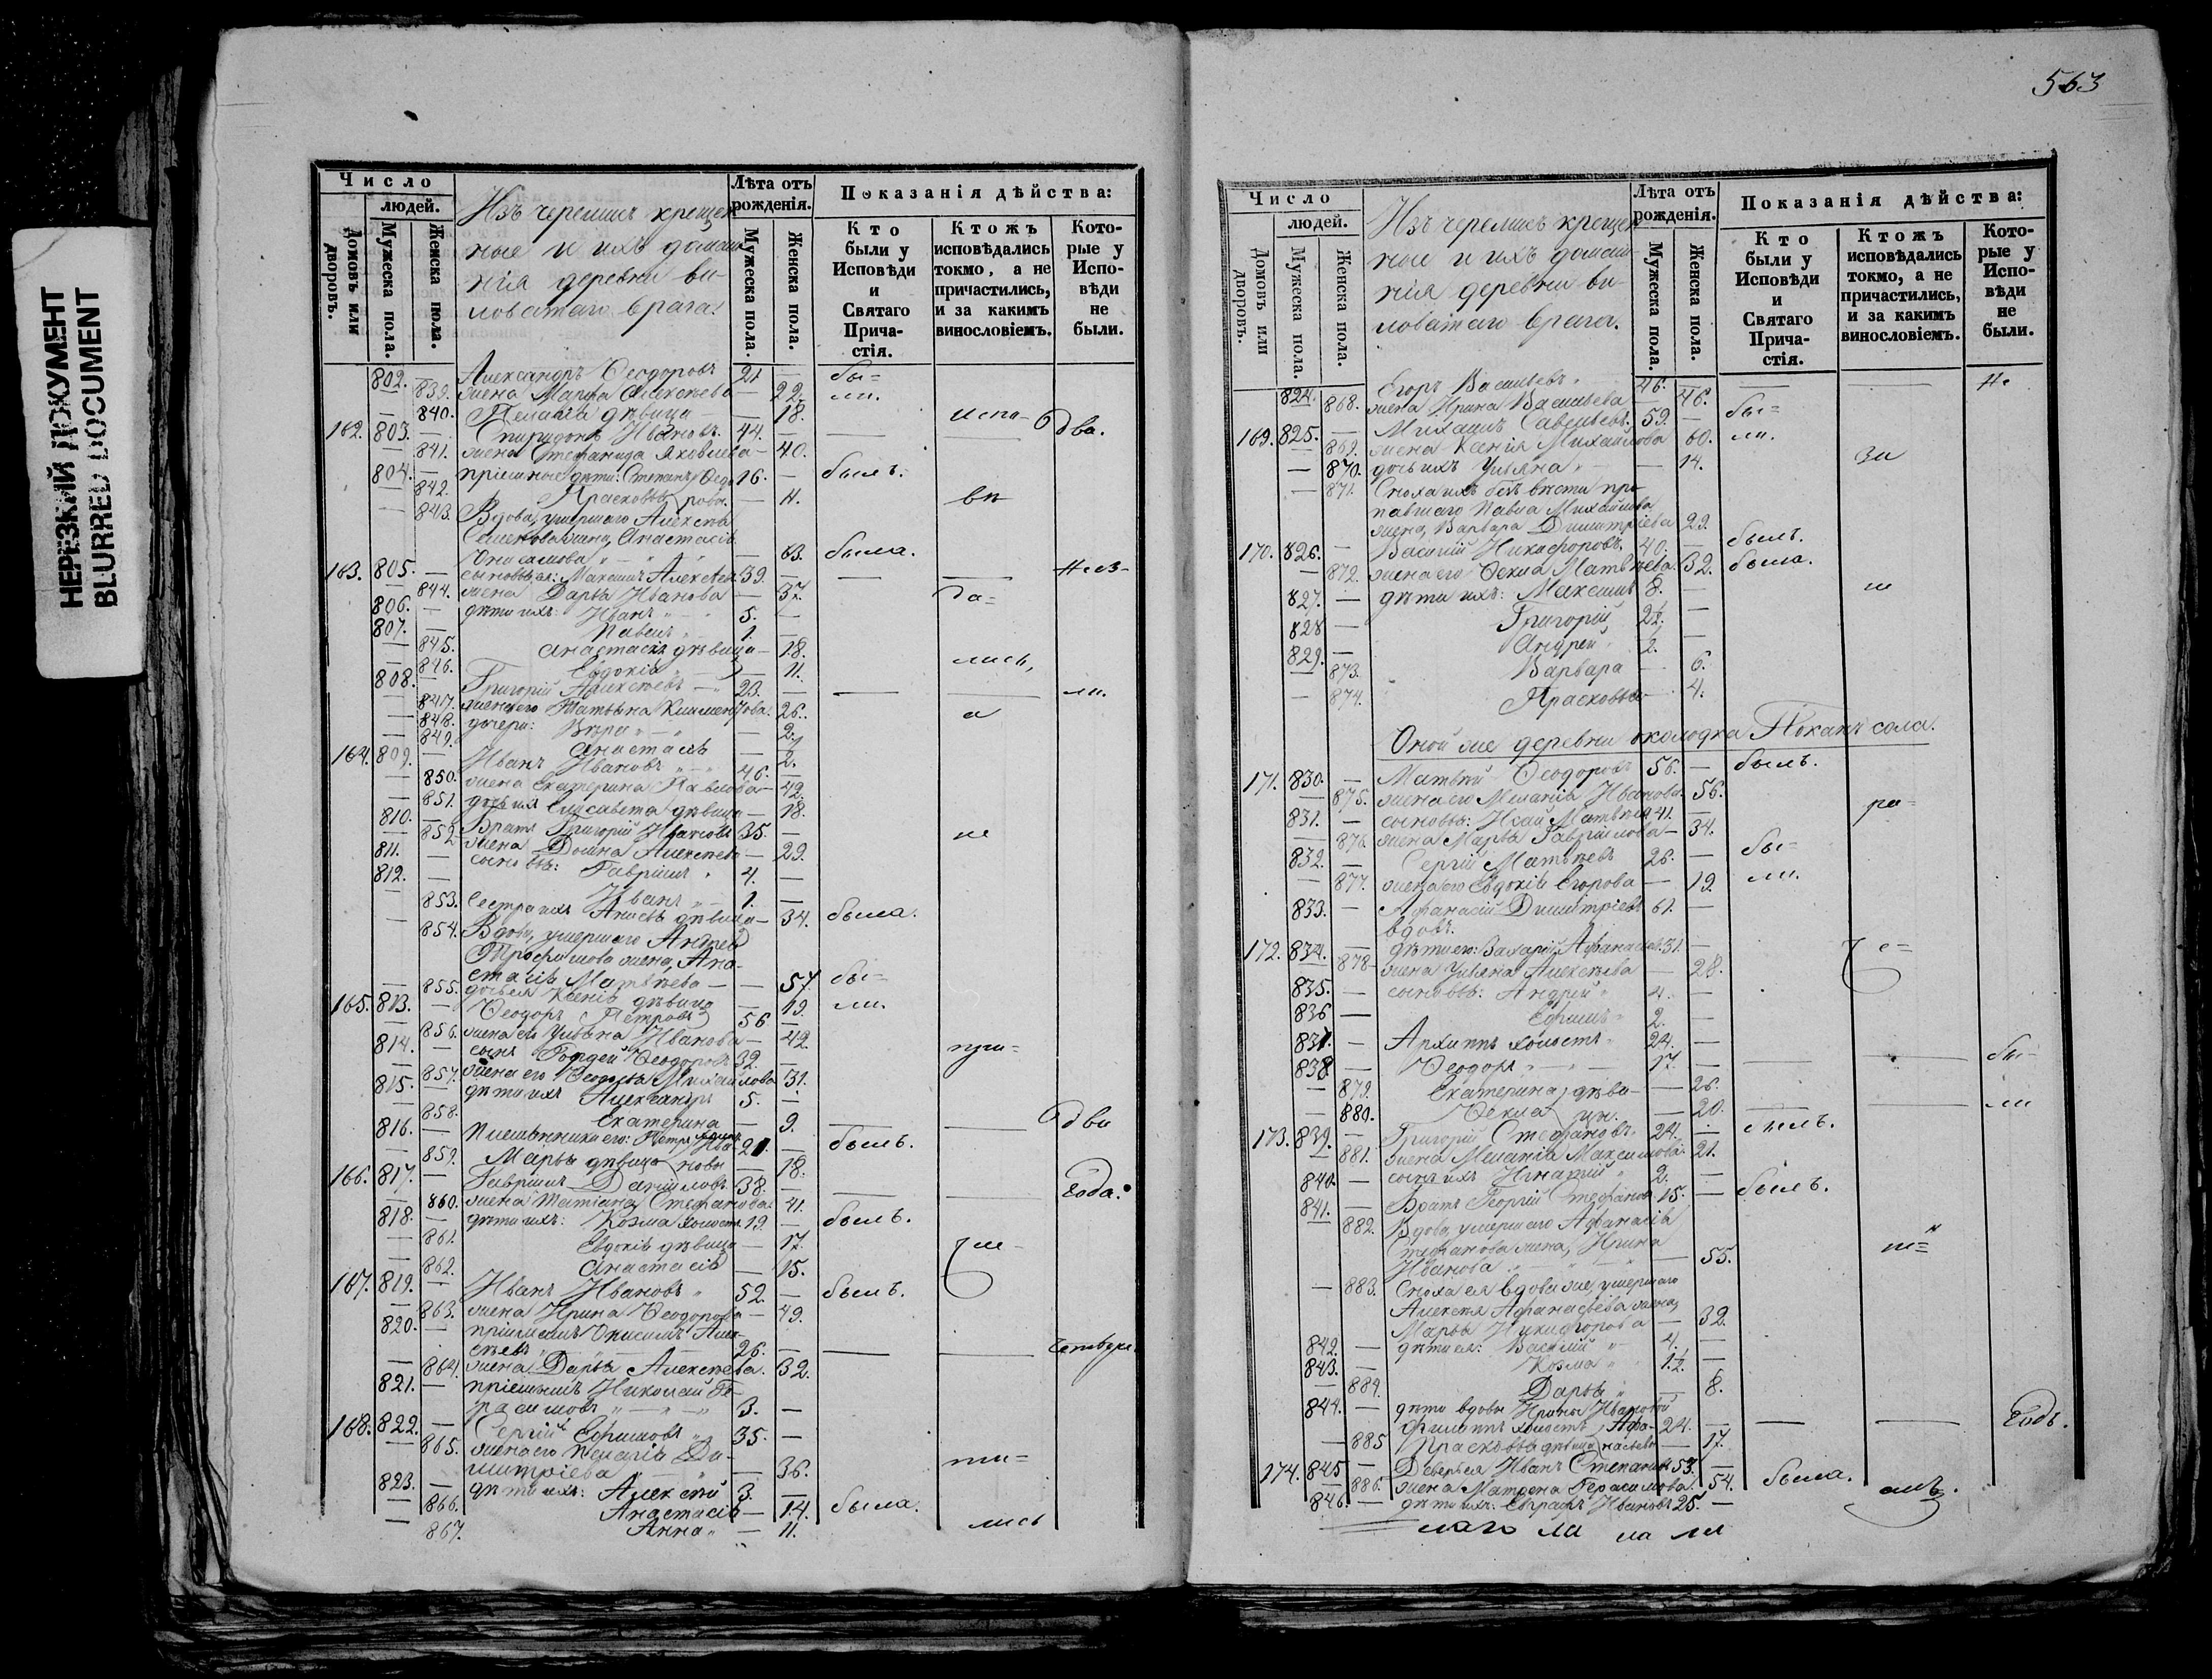 НЕРЕЗКИЙ ДОКУМЕНТ
BLURRED DOCUMENT
Число
людей.
Домовъ или дворовъ.
Мужеска пола.
Женска пола.
Изъ черемисъ крещен
ные и ихъ домаш
нія деревни ви-
ловатаго врага.
Лѣта отъ рожденія.
Мужеска пола.
Женска пола.
Показанія дѣйства:
Кто были у Исповѣди и Святаго Прича-стія.
Ктожъ исповѣдались токмо, а не причастились, и за какимъ винословіемъ.
Кото-рые у Испо-вѣди не были.
802. Александръ Ѳеодоровъ 21 — бы=
839. жена Марѳа Алексѣева — 22. ли.
840. Пелагія дѣвица — 18. испо-
162. 803. — Спиридонъ Ивановъ. 44. — два.
841. жена Стефанида Яковлева — 40.
804. — пріемные дѣти: Степанъ Ѳедо 16. — былъ.
842. Прасковья ровы. — 11. вѣ
843. Вдова, умершаго Алексѣя
Семенова жена, Анастасія
Онисимова — 63. была.
163. 805. — сыновья ея: Максимъ Алексѣев. 39. —
844. жена Дарья Иванова — 37. да=
806. — дѣти ихъ: Иванъ 5. —
807. — Павелъ 1. —
845. Анастасія дѣвица — 18.
846. Евдокія — 11. лись,
808. Григорій Алексѣевъ — 23. — ли.
847. жена его Татьяна Климентова. 26. а
848. дочери: Вѣра — 2.
849. Анастасія — 2.
164. 809. — Иванъ Ивановъ 46. —
850. жена Екатерина Павлова — 42.
851. дочь ихъ Елисавета дѣвица — 18.
810. — Братъ Григорій Ивановъ 35. — не
852. жена Домна Алексѣева — 29.
811. — сыновья: Гавріилъ 4. —
812. — Иванъ 1. —
853. Сестра ихъ Анисья дѣвица — 34. была.
854. Вдова, умершаго Андрея
Трофимова жена, Ана-
стасія Матвѣева — 57. бы=
855. дочь ея Ксенія дѣвица — 19. ли.
165. 813. — Ѳеодоръ Петровъ 56 —
856. жена его Ульяна Иванова — 42.
814. — сынъ Гордей Ѳеодоровъ 32. — при=
857. жена его Ѳеодосья Михайлова 31.
815. — дѣти ихъ Александръ 5. —
858. Екатерина — 9.
816. — племянники его: Петръ Ива 21. — былъ. два
859. Марья дѣвица новы — 18.
166. 817. — Гавріилъ Даниловъ 38. — года.
860. жена Татіана Стефанова. 41.
818. — дѣти ихъ: Козма холостъ 19. — былъ.
861. Евдокія дѣвица — 17.
862. Анастасія — 15.
167. 819. — Иванъ Ивановъ 52. — былъ.
863. жена Ирина Ѳеодорова — 49.
820. — пріимышъ Онисимъ Алек-
сѣевъ 26. —
864. жена Дарья Алексѣева. 32.
821. — пріемышъ Николай Ге-
расимовъ 3. —
168. 822. — Сергій Ефимовъ 35. —
865. жена его Пелагія Ди-
митріева — 36. ти=
823. — дѣти ихъ: Алексѣй 3. —
866. Анастасія — 14. была.
867. Анна — 11. лись
563
Число
людей.
Домовъ или дворовъ.
Мужеска пола.
Женска пола.
Изъ черемисъ крещен
ные и ихъ домаш-
нія деревни ви-
ловатаго врага.
Лѣта отъ рожденія.
Мужеска пола.
Женска пола.
Показанія дѣйства:
Кто были у Исповѣди и Святаго Прича-стія.
Ктожъ исповѣдались токмо, а не причастились, и за какимъ винословіемъ.
Кото-рые у Испо-вѣди не были.
824. Егоръ Васильевъ 46. — не
868. жена Ирина Васильева — 46.
169. 825. — Михаилъ Савельевъ. 59. — бы=
869. жена Ксенія Михайлова 60. ли.
870. дочь ихъ Ульяна — 14. за
871. Сноха ихъ безъ вѣсти про-
павшаго Павла Михайлова
жена, Варвара Димитріева 29.
170. 826. — Василій Никифоровъ. 40. — былъ.
872. жена его Ѳекла Матвѣева. 32. была.
827. — дѣти ихъ: Максимъ 8. —
828 — Григорій 2½. —
829. — Андрей 2. —
873. Варвара — 6.
874. Прасковья — 4.
Оной же деревни околодка Поканъ сола.
171. 830. — Матвѣй Ѳеодоровъ 56. — былъ.
875. жена его Меланія Иванова. 56.
831. — сыновья: Исай Матвѣев 41. — ра=
876. жена Марья Гавріилова — 34.
832. — Сергій Матвѣевъ 26. — бы=
877. жена его Евдокія Егорова — 19. ли.
833. — Афанасій Димитріевъ 61. —
вдовъ.
172. 834. — дѣти его: Захарій Афанасьев. 31. —
878 жена Ульяна Алексѣева — 28.
835. — сыновья: Андрей 4. —
836 — Ефимъ 2. —
837. — Архиппъ холостъ 24. —
838 — Ѳеодоръ 17. — бы-
879. Екатерина дѣви- — 26.
880. Ѳекла цы. — 20. ли
173. 839. — Григорій Стефановъ. 24. — былъ.
881. жена Меланія Максимова. 21.
840. — сынъ ихъ Игнатій 2. —
841. — Братъ Георгій Стефанов. 15. — былъ.
882. Вдова, умершаго Афанасія
Стефанова жена, Ирина
Иванова — 55.
883. Сноха ея вдова же, умершаго
Алексѣя Афанасьева жена,
Марья Никифорова — 32.
842. — дѣти ея: Василій 4. —
843. — Козма 1½. —
884. Дарья — 8.
844. — дѣти вдовы Ирины Ивановой
Филиппъ холостъ Афа- 24. — годъ.
885 Прасковья дѣвица насьевы — 17.
174. 845 — Деверь ея Иванъ Степановъ 53. —
886. жена Матрона Герасимова. 54. была.
846. — дѣти ихъ: Евграфъ Ивановъ 25. —